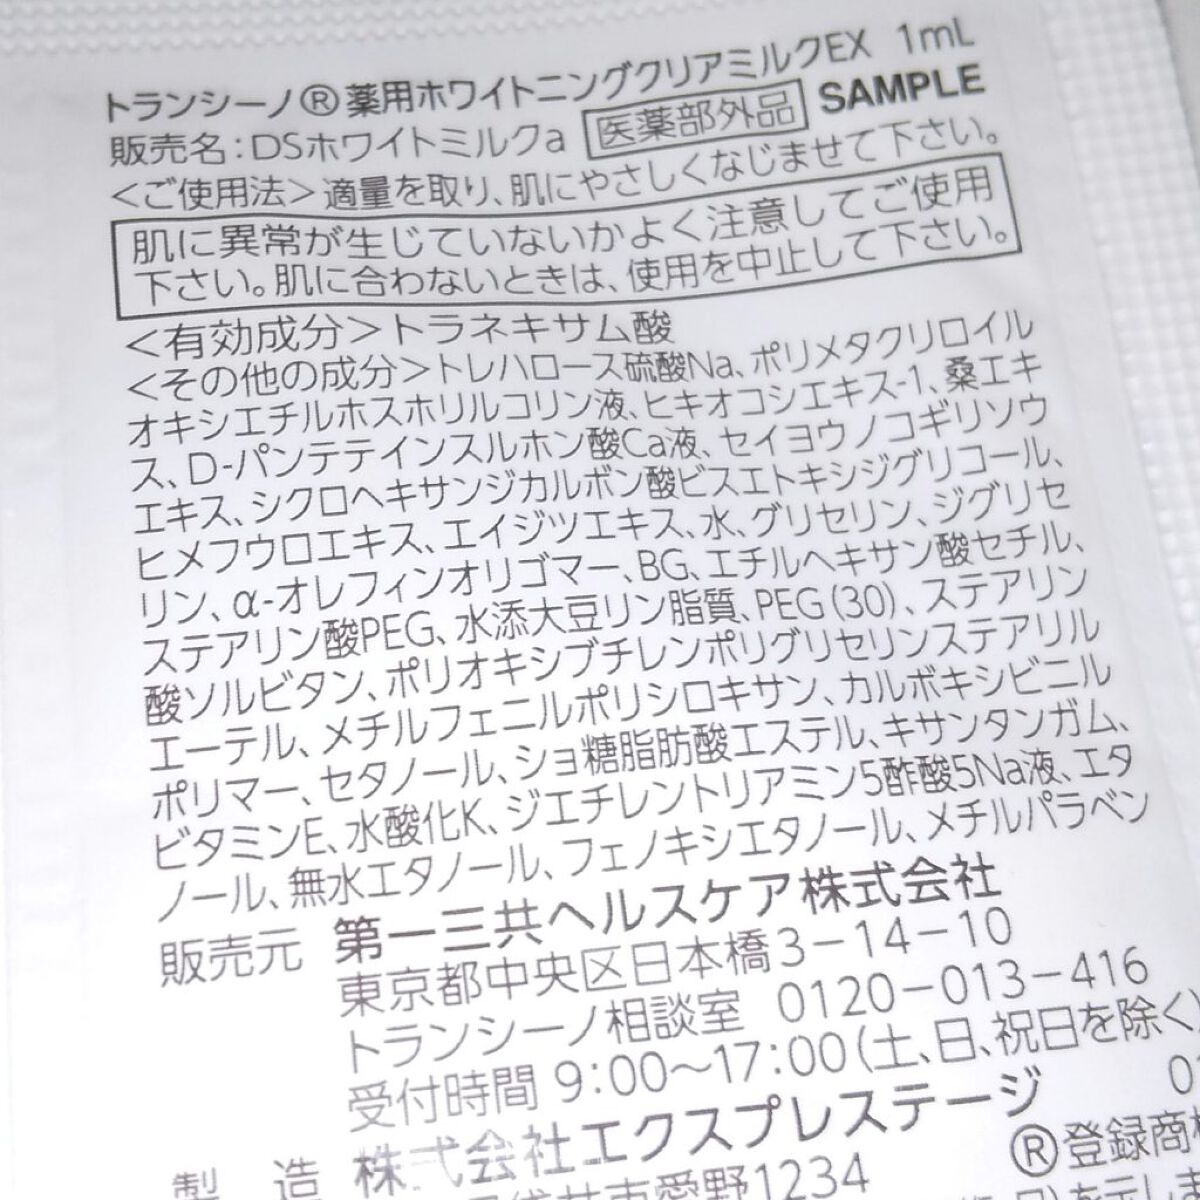 トランシーノ®薬用ホワイトニングクリアミルクEX 1mL
販売名:DSホワイトミルクa 医薬部外品 SAMPLE
<ご使用法>適量を取り、肌にやさしくなじませて下さい。
肌に異常が生じていないかよく注意してご使用
下さい。肌に合わないときは、使用を中止して下さい。
<有効成分>トラネキサム酸
<その他の成分>トレハロース硫酸Na、ポリメタクリロイル
オキシエチルホスホリルコリン液、ヒキオコシエキス-1、桑エキ
ス、D-パンテテインスルホン酸Ca液、セイヨウノコギリソウ
エキス、シクロヘキサンジカルボン酸ビスエトキシジグリコール、
ヒメフウロエキス、エイジツエキス、水、グリセリン、ジグリセ
リン、α-オレフィンオリゴマー、BG、エチルヘキサン酸セチル、
ステアリン酸PEG、水添大豆リン脂質、PEG(30)、ステアリン
酸ソルビタン、ポリオキシブチレンポリグリセリンステアリル
エーテル、メチルフェニルポリシロキサン、カルボキシビニル
ポリマー、セタノール、ショ糖脂肪酸エステル、キサンタンガム、
ビタミンE、水酸化K、ジエチレントリアミン5酢酸5Na液、エタ
ノール、無水エタノール、フェノキシエタノール、メチルパラベン
販売元 第一三共ヘルスケア株式会社
東京都中央区日本橋3-14-10
トランシーノ相談室 0120-013-416
受付時間 9:00~17:00(土、日、祝日を除く)
製造 株式会社エクスプレステージ
市愛野1234
®登録商